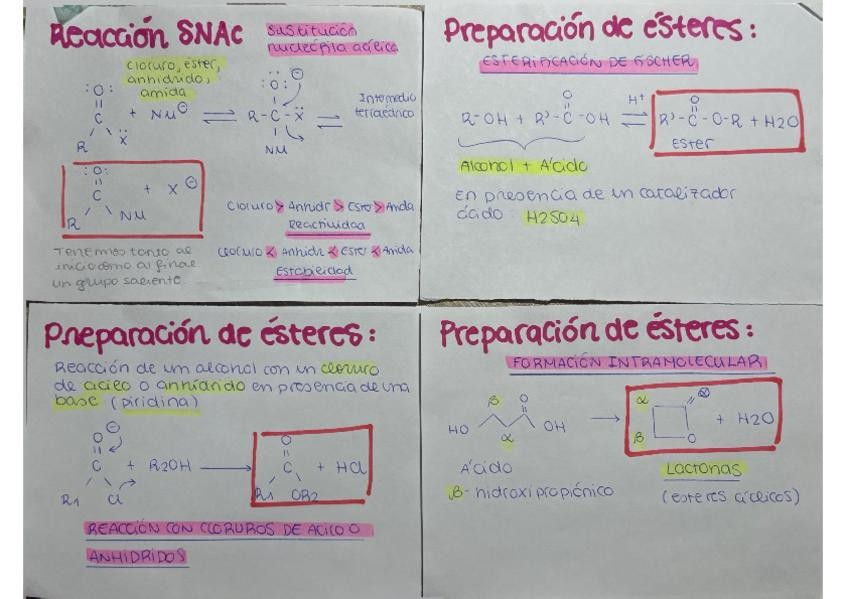 Reacción SNAC
Sustitución
nucleófila acílica
cloruro, éster,
anhídrido,
amida
:O:
C
R
X
+ Nu⊖
⇌
:O:⊖
R-C-X
Nu
⇌
Intermedio
tetraédrico
:O:
C
R
Nu
+ X⊖
Cloruro > Anhidr > Ester > Amida
Reactividad
Cloruro < Anhidr < Ester < Amida
Estabilidad
Tenemos tanto al
inicio como al final
un grupo saliente.
Preparación de ésteres:
ESTERIFICACIÓN DE FISCHER
O
O
R-OH + R'-C-OH ⇌ R'-C-O-R + H2O
H+
Ester
Alcohol + Ácido
En presencia de un catalizador
ácido: H2SO4
Preparación de ésteres:
Reacción de un alcohol con un cloruro
de acilo o anhídrido en presencia de una
base (piridina)
O⊖
C
R1
Cl
+ R2OH →
O
C
R1
OR2
+ HCl
REACCIÓN CON CLORUROS DE ACILO O
ANHIDRIDOS
Preparación de ésteres:
FORMACIÓN INTRAMOLECULAR
β
O
HO
α
OH
→
α
β
O
+ H2O
Ácido
β-hidroxipropiónico
Lactonas
(esteres cíclicos)